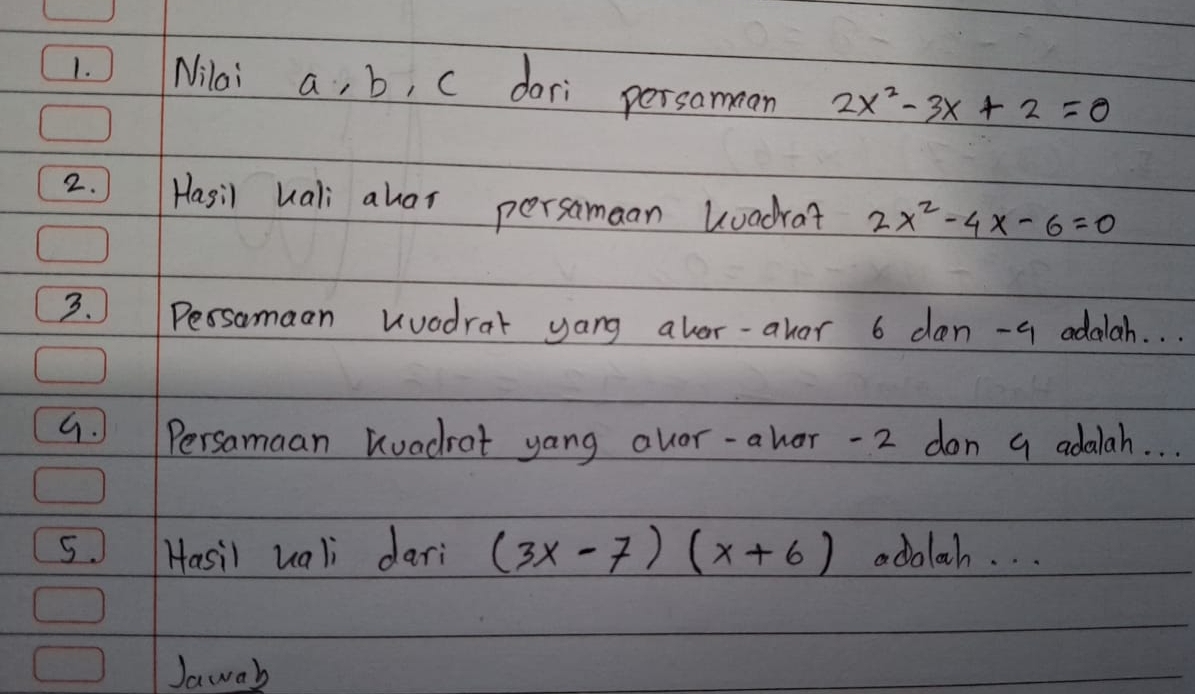 1. Nilai a, b, c dari persamaan 2x² - 3x + 2 = 0
2. Hasil kali akar persamaan kuadrat 2x² - 4x - 6 = 0
3. Persamaan kuadrat yang akar - akar 6 dan -4 adalah...
4. Persamaan kuadrat yang akar - akar -2 dan 4 adalah...
5. Hasil kali dari (3x - 7) (x + 6) adalah...
Jawab